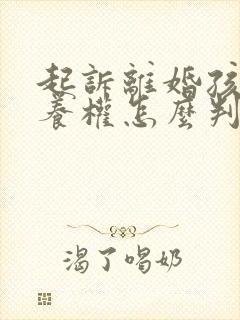 起訴離婚孩
養權怎麼判
渴了喝奶